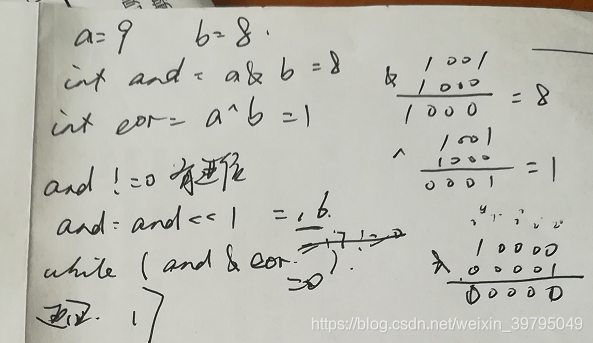 a=9 b=8.
int and = a & b = 8
int eor= a^b = 1
and != 0 有进位
and= and << 1 = 16
while ( and & eor
=0 ).
17
& 1001
1000
1000 = 8
^ 1001
1000
0001 = 1
10000
00001
00000
https://blog.csdn.net/weixin_39795049